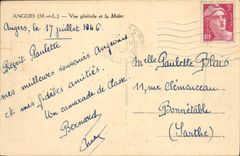 ANGERS (M.-et-L.) — Vue générale et la Maine
Angers, le 17 juillet 1946.
Paulette
mes meilleurs souvenirs Angevins
et mes fidèles amitiés.
Un camarade de classe
Bernard
Melle Paulette Blais
11, rue Clémenceau
Bonnétable
(Sarthe)